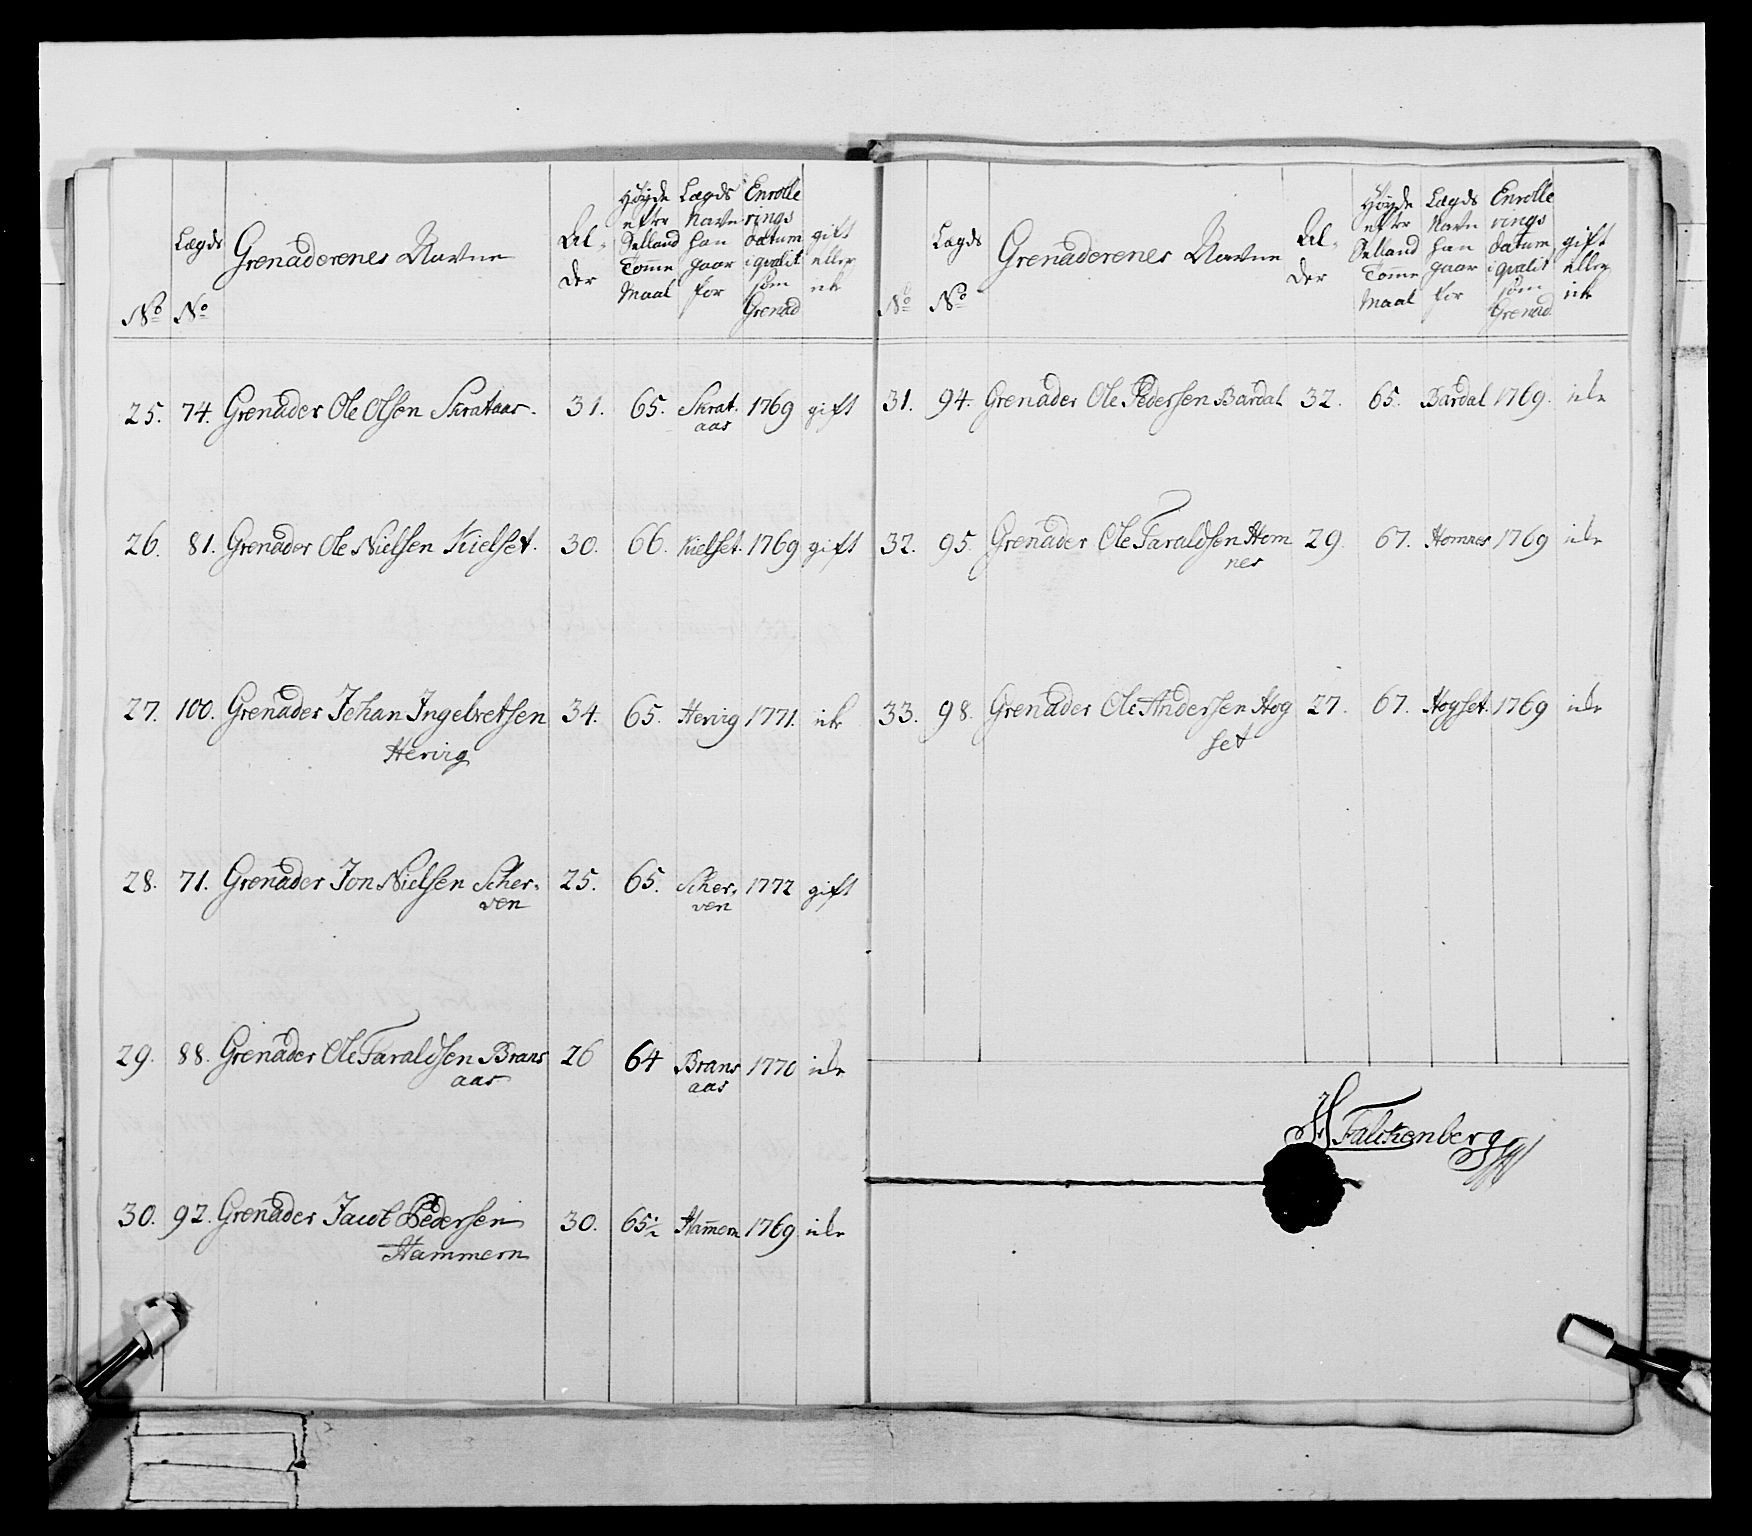 No
Lægds No
Grenaderenes Navne
Al-
der
Höyde
efter
Selland
Tomme
Maal
Lægds
Navn
han
gaar
for
Enrolle
rings
datum
i qvalit
som
Grenad
gift
eller
ik
25. 74. Grenader Ole Olsen Skrataas. 31. 65. Skrat. 1769 gift
aas
26. 81. Grenader Ole Nielsen Kielset. 30. 66. Kielset. 1769 gift
27. 100. Grenader Johan Ingebretsen 34. 65. Hervig 1771. ik
Hervig
28. 71. Grenader Jon Nielsen Scher- 25. 65. Scher- 1772 gift
ven ven
29. 88. Grenader Ole Taraldsen Brans 26 64 Brans 1770 ik
aas aas
30. 92. Grenader Jacob Pedersen 30. 65½ Ham̄ern 1769 ik
Hammern
No
Lægds
No
Grenaderenes Navne
Al-
der
Höyde
efter
Selland
Tomme
Maal
Lægds
Navn
han
gaar
for
Enrolle
rings
datum
i qvalit
som
Grenad
gift
eller
ik
31. 94. Grenader Ole Pedersen Bardal 32. 65. Bardal 1769. ik
32. 95. Grenader Ole Taraldsen Hom 29. 67. Homnes 1769 ik
nes
33. 98. Grenader Ole Andersen Hog 27. 67. Hogset. 1769 ik
set
H Falckenberg